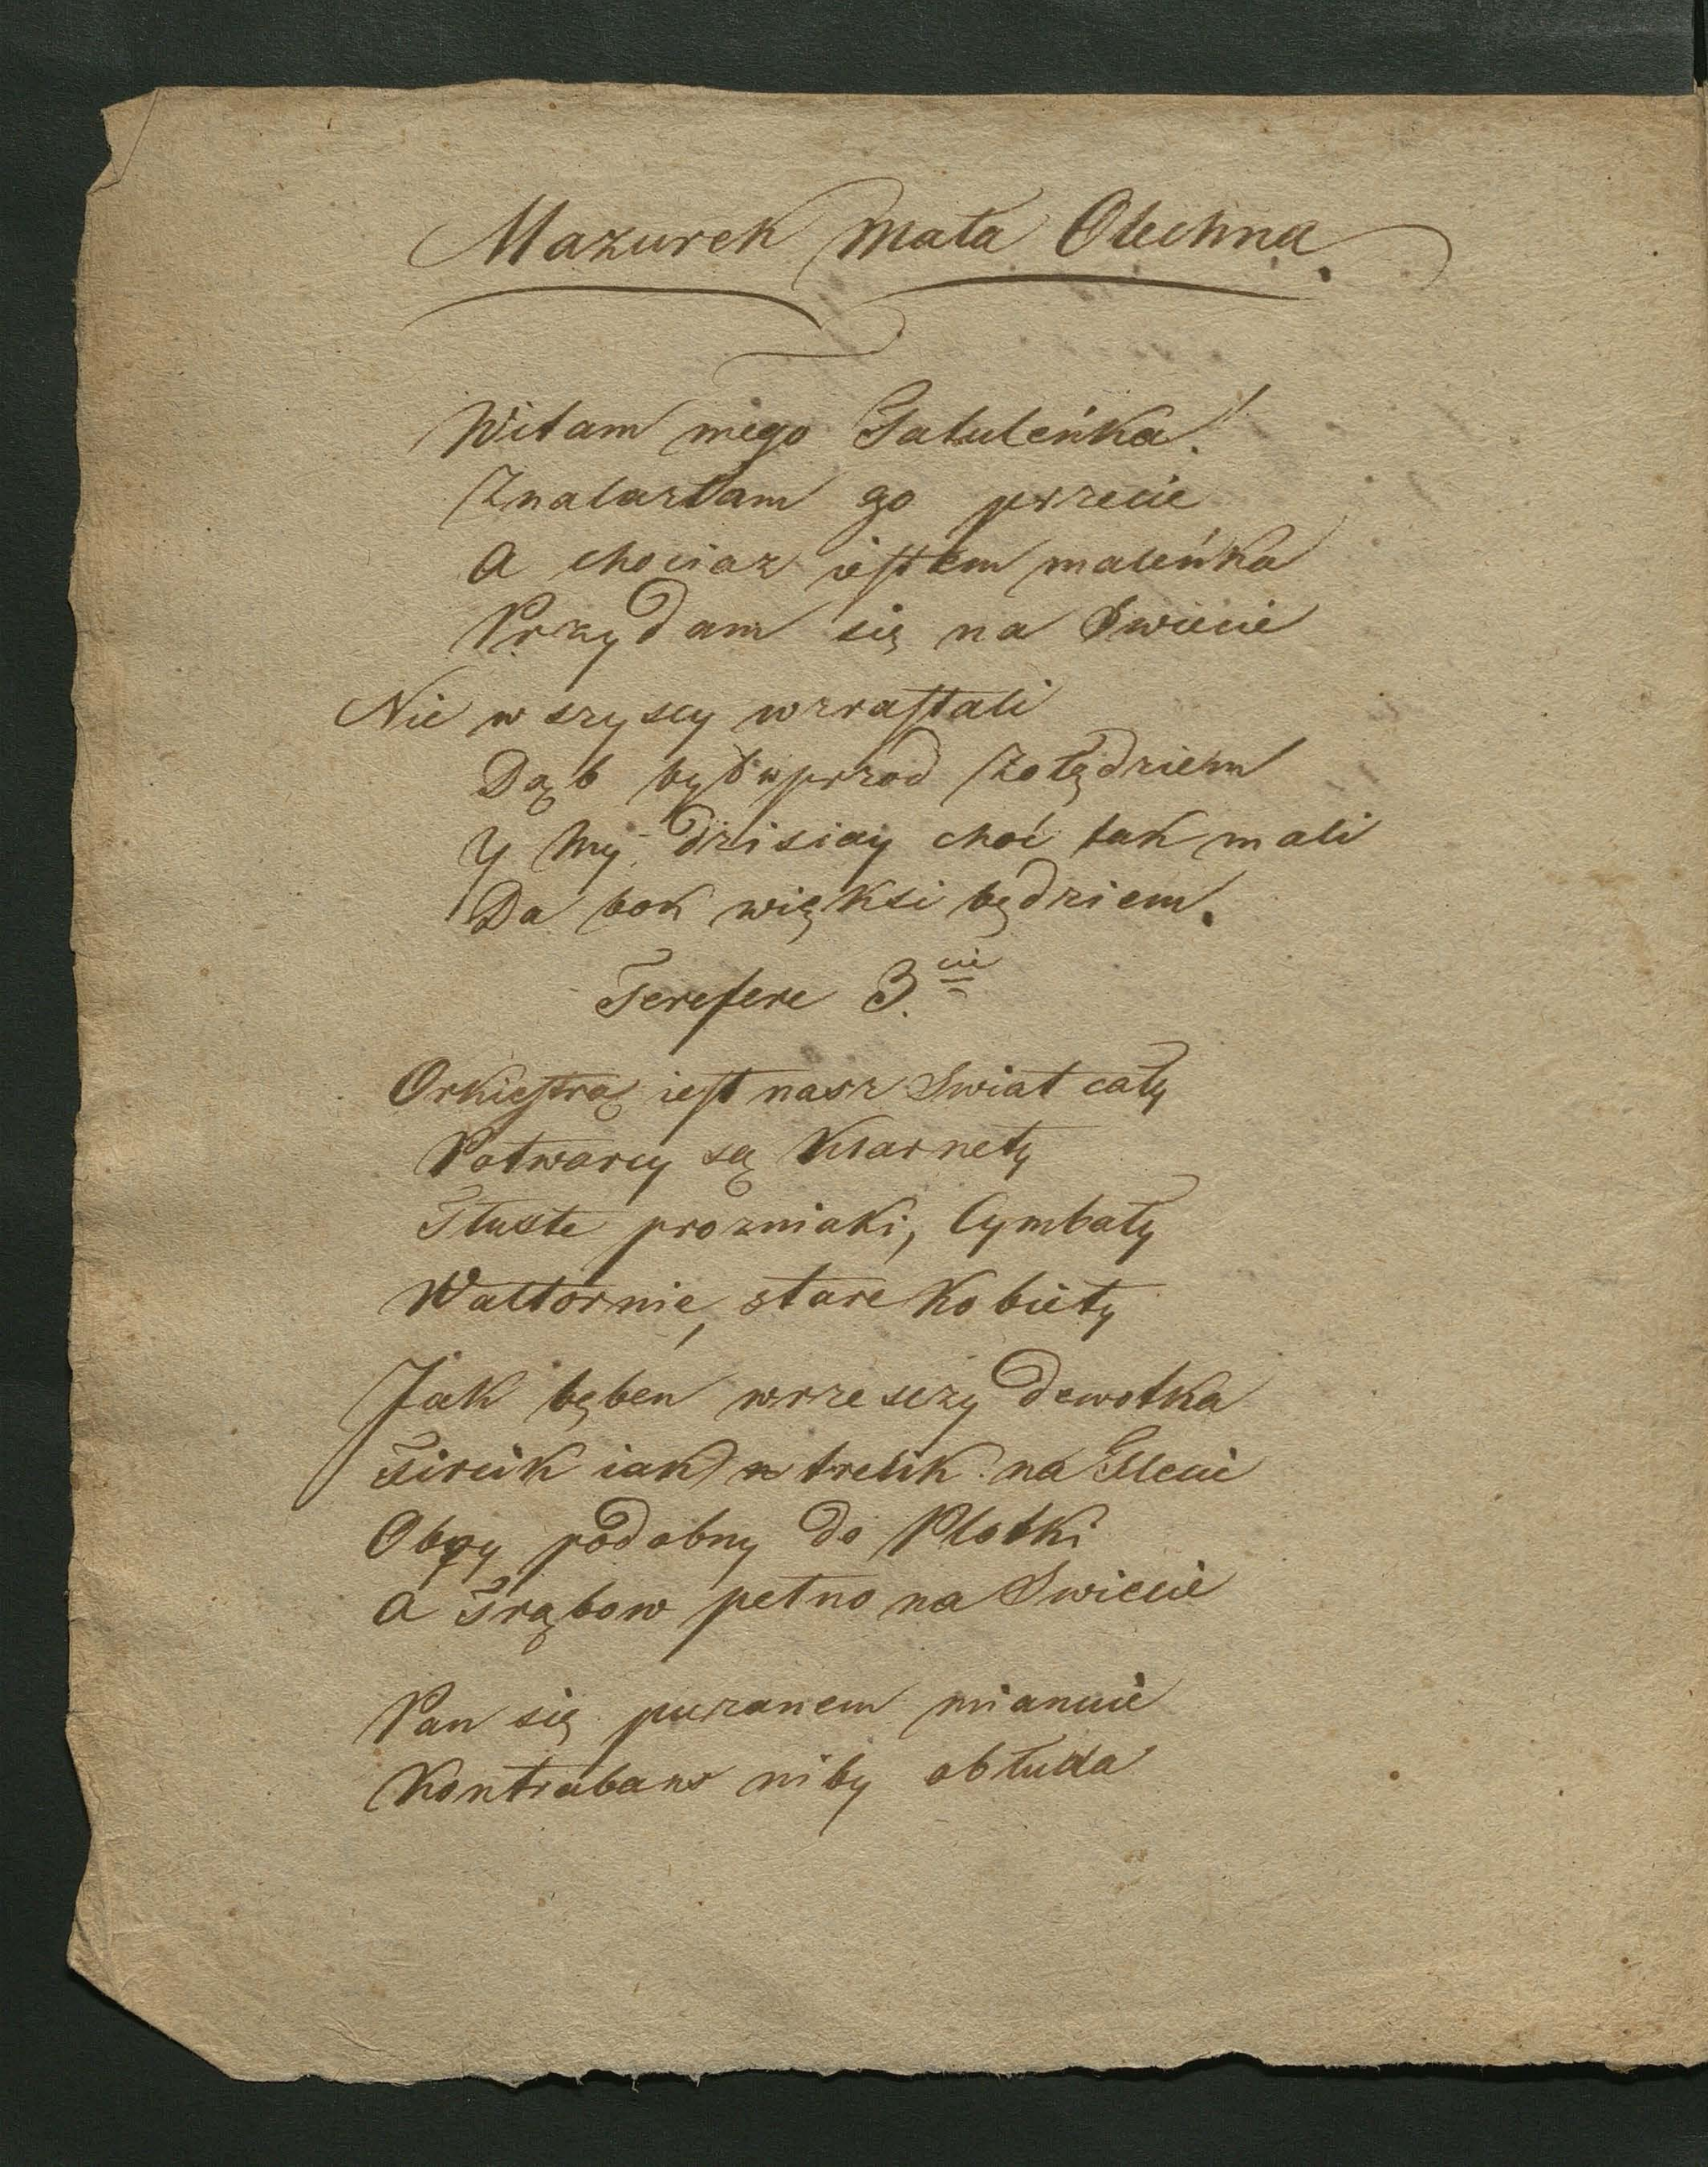 Mazurek Mała Olechna.
Witam mego Tatuleńka!
Znalazłam go przecie
A chociaz iestem maleńka
Przydam się na Swiecie
Nie wszyscy wzrastali
Dąb był wprzod żołędziem
Y My dzisiay choć tak mali
Da bok więksi będziem.
Terefere 3.cie
Orkiestrą iest nasz Swiat cały
Potwarcy są Klarnety
Tłuste prozniaki, Cymbały
Waltornie, stare Kobiety
Jak bęben wrzeszczy dewotka
Fircik iak trelik na Flecie
podobny do Plotki
A Trąbow pełno na Swiecie
Pan się puzanem mianuie
Kontrabas niby obłuda